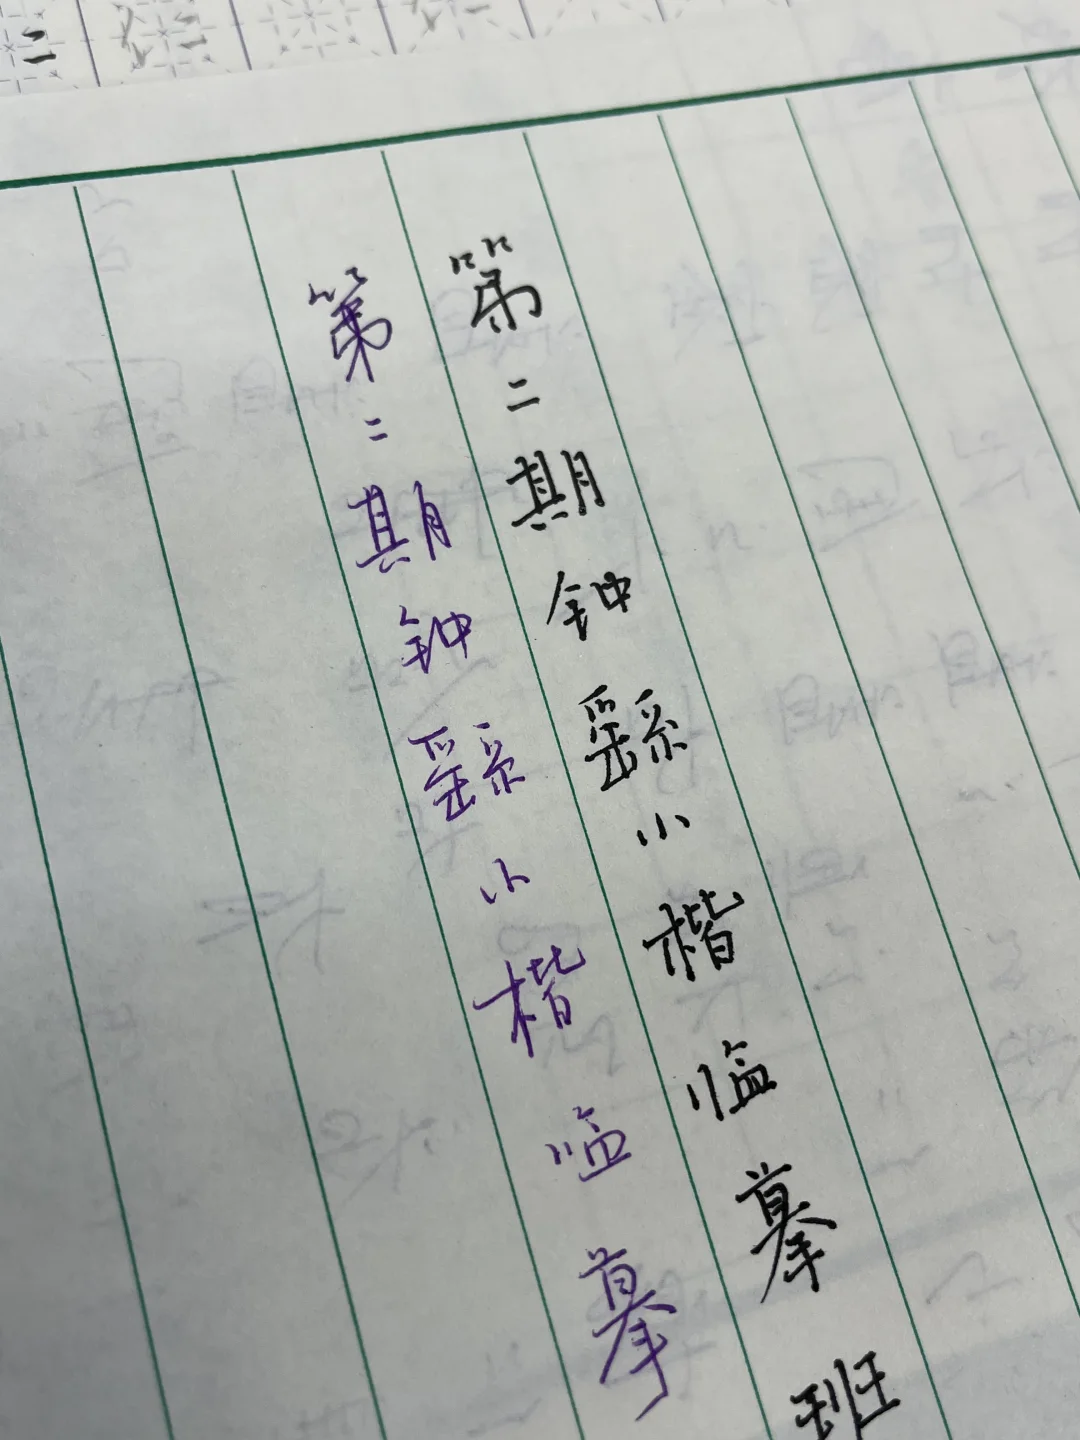 第二期钟繇小楷临摹班
第二期钟繇小楷临摹